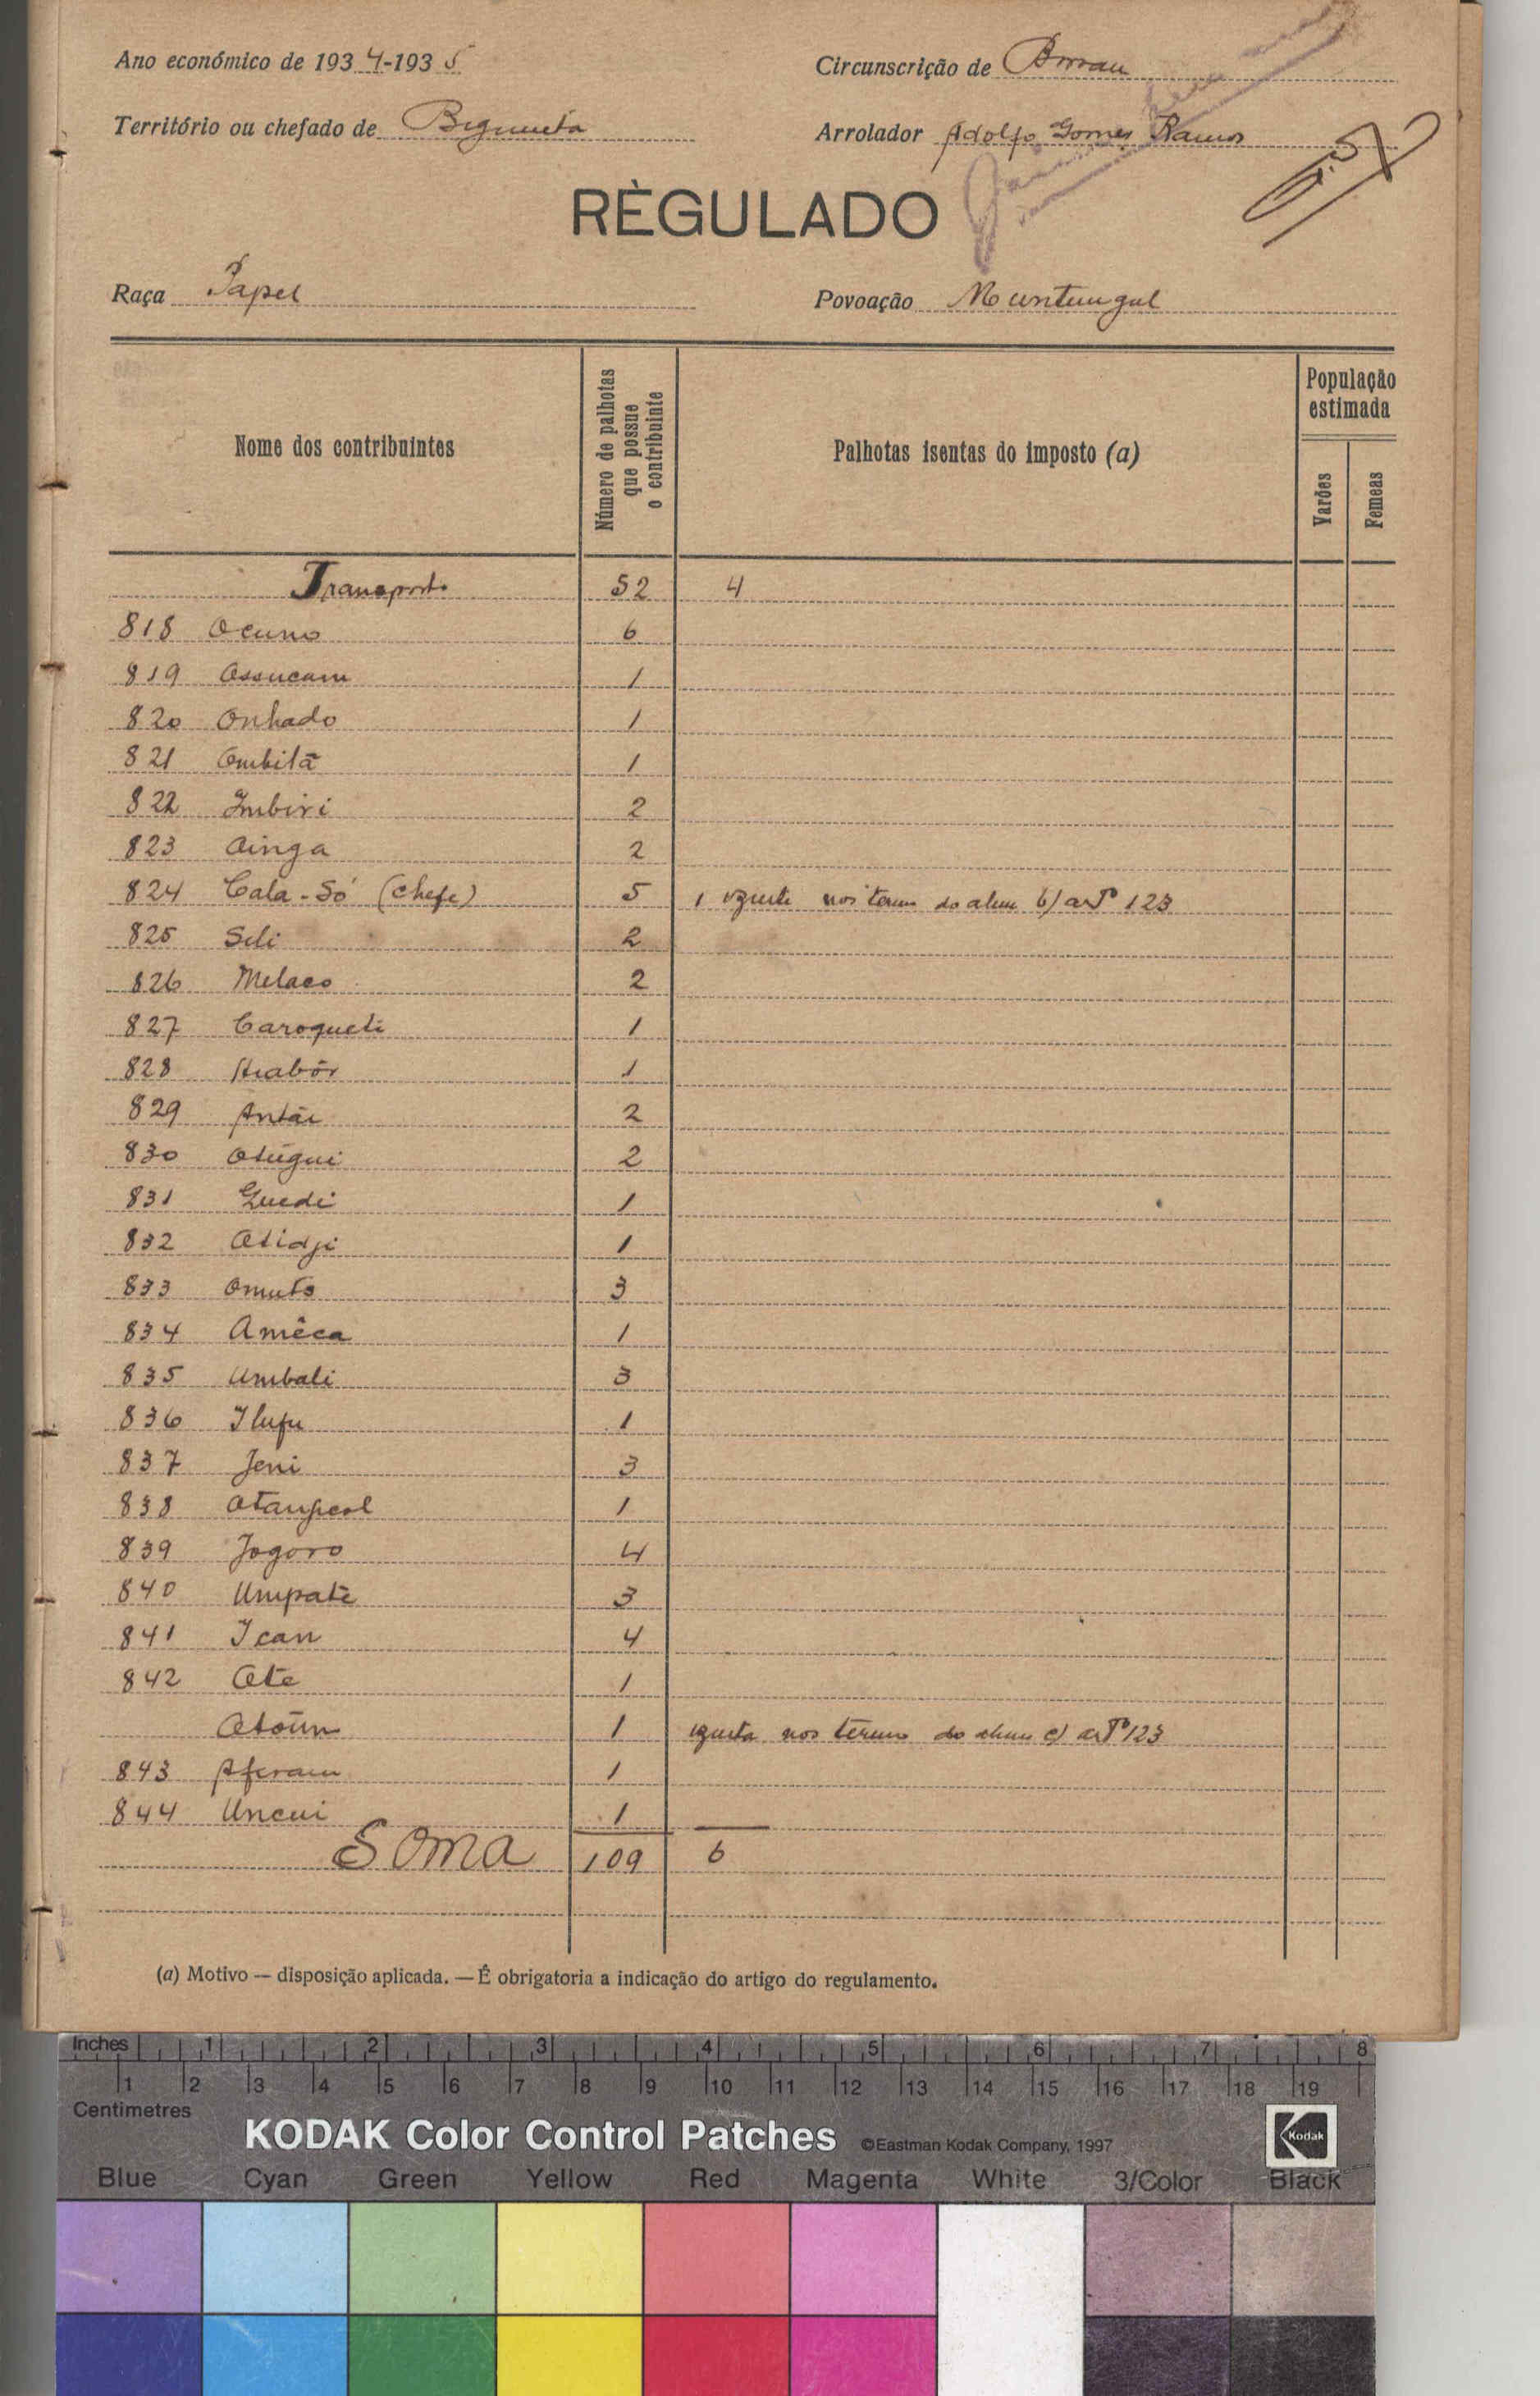 Ano económico de 1934-1935
Circunscrição de
Território ou chefado de
Arrolador Adolfo Gomes Ramos
RÈGULADO
Raça Papel
Povoação Muntungul
Nome dos contribuintes
Número de palhotas que possue o contribuinte
Palhotas isentas do imposto (a)
População estimada
Varões
Femeas
Transporte 52 4
818 Ocuno 6
819 Ossucam 1
820 Onhado 1
821 Ombilã 1
822 Imbiri 2
823 Ainga 2
824 Cala-Só (chefe) 5 1 nos do b) artº 123
825 Sili 2
826 Melaco 2
827 Caroqueti 1
828 1
829 Antãi 2
830 2
831 Guedi 1
832 1
833 Omuto 3
834 Amêca 1
835 Umbali 3
836 Ilufu 1
837 Jeni 3
838 1
839 Jogoro 4
840 Umpatè 3
841 Ican 4
842 1
1 nos do c) artº 123
843 Aferam 1
844 Uncui 1
Soma 109 6
(a) Motivo — disposição aplicada. — É obrigatoria a indicação do artigo do regulamento.
Inches 1 2 3 4 5 6 7 8
1 2 3 4 5 6 7 8 9 10 11 12 13 14 15 16 17 18 19
Centimetres
KODAK Color Control Patches ©Eastman Kodak Company, 1997 Kodak
Blue Cyan Green Yellow Red Magenta White 3/Color Black